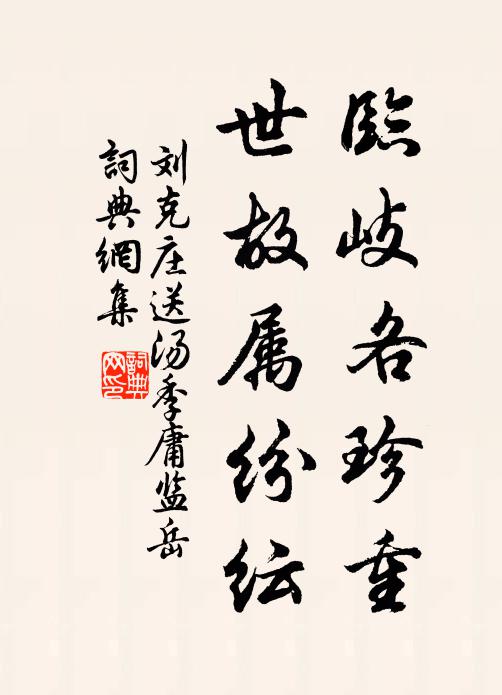 臨岐各珍重
世故属纷纭
刘克庄送汤季庸监岳
詞典網集
詞典网印